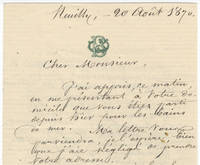 Neuilly, - 20 Août 1870.
Cher Monsieur,
J'ai appris, ce matin
en me présentant à votre do-
micile que vous étiez parti
depuis hier pour les bains
de mer. Ma lettre vous
parviendra, j'espère, bien
que j'aie négligé de prendre
votre adresse.